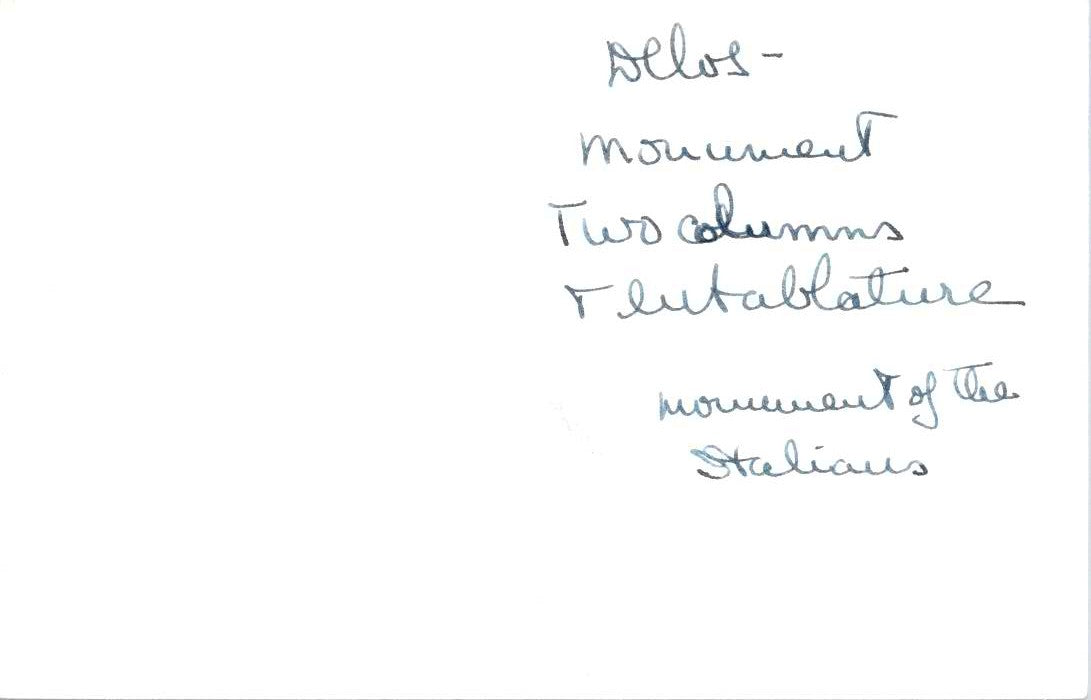 Delos -
Monument
Two columns
+ entablature
monument of the
Italians